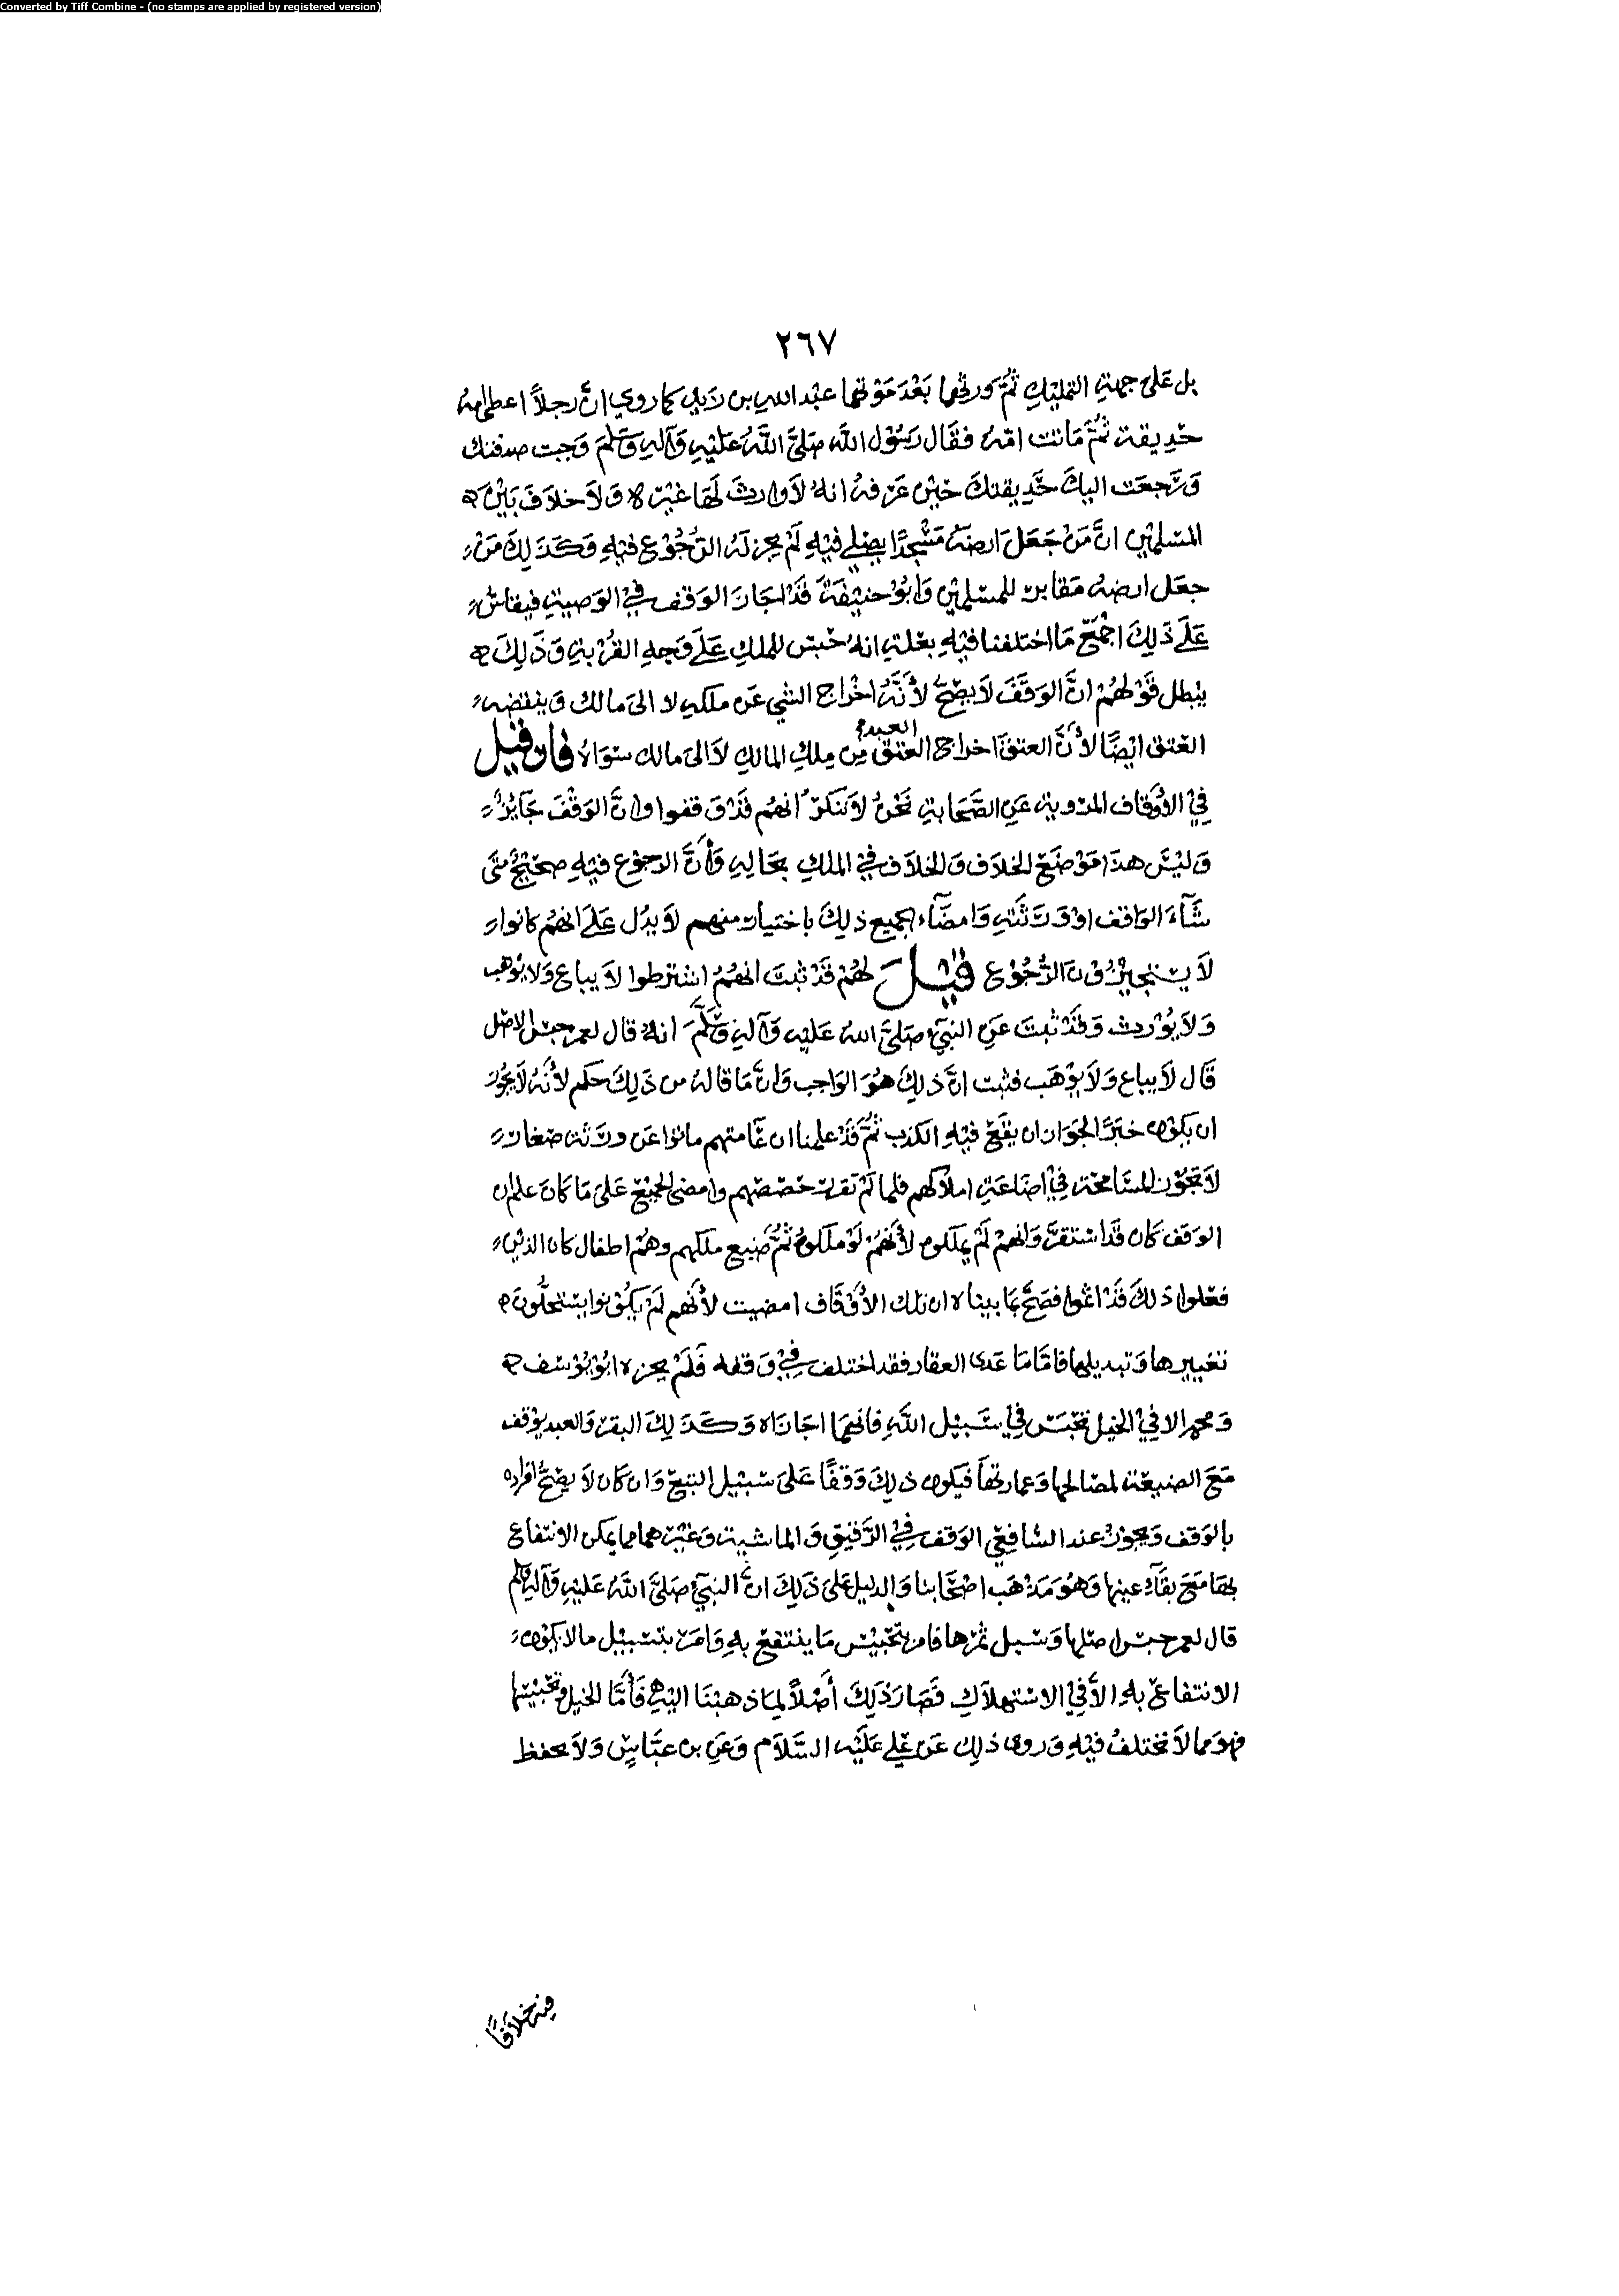 Converted by Tiff Combine - (no stamps are applied by registered version)
٢٦٧
بل على جهة التمليك ثم ورثها بعد موتهما عبد الله بن زيد كما روي ان رجلاً اعطى امه
حديقة ثم ماتت امه فقال رسول الله صلى الله عليه وآله وسلم وجبت صدقتك
ورجعت اليك حديقتك حين عرفه انه لا وارث لها غيره ولا خلاف بين
المسلمين ان من جعل ارضه مسجدًا يصلي فيه لم يجز له الرجوع فيه وكذلك من
جعل ارضه مقابر للمسلمين وابو حنيفة قد اجاز الوقف في الوصية فيقاس
على ذلك اجمع ما اختلفنا فيه بعلة انه حبس للملك على وجه القربة وذلك
يبطل قولهم ان الوقف لا يصح لأنه اخراج الشي عن ملكه لا الى مالك وينقضه
العتق ايضًا لأن العتق اخراج العتق من ملك المالك لا الى مالك سواء فان قيل
العبد
في الأوقاف المروية عن الصحابة نحن لا ننكر انهم قد وقفوا وان الوقف جايز
وليس هذا موضع الخلاف والخلاف في الملك بحاله وأن الرجوع فيه صحيح متى
شآء الواقف او ورثته وامضآء الجميع ذلك باختيار منهم لا يدل على انهم كانوا
لا يستجيزون الرجوع قيل لهم قد ثبت انهم اشترطوا لا يباع ولا يوهب
ولا يورث وقد ثبت عن النبي صلى الله عليه وآله وسلم انه قال لعمر حبس الاصل
قال لا يباع ولا يوهب فثبت ان ذلك هو الواجب وان ما قاله من ذلك حكم لأنه لا يجوز
ان يكون خبرًا لجواز ان يقع فيه الكذب ثم قد علمنا ان عامتهم ماتوا عن ورثة صغار
لا تجوز المسامحة في اضاعة املاكهم فلما لم تفرز حصصهم وامضى الجميع على ما كان علم ان
الوقف كان قد استقر وانهم لم يملكوه لأنهم لو ملكوه ثم ضيع ملكهم وهم اطفال كان الذين
فعلوا ذلك قد اثموا فصح بما بيناه ان تلك الأوقاف امضيت لأنهم لم يكونوا يستحلون
تغييرها وتبديلها فاما ما عدى العقار فقد اختلف في وقفه فلم يجزه ابو يوسف
ومحمد الا في الخيل تحبس في سبيل الله فانهما اجازاه وكذلك البقر والعبد يوقف
مع الضيعة لمصالحها وعمارتها فيكون ذلك وقفًا على سبيل التبع وان كان لا يصح افراده
بالوقف ويجوز عند الشافعي الوقف في الرقيق والماشية وغيرهما مما يمكن الانتفاع
بها مع بقآء عينها وهو مذهب اصحابنا والدليل على ذلك ان النبي صلى الله عليه وآله وسلم
قال لعمر حبس اصلها وسبل ثمرها فامر بتحبيس ما ينتفع به وامر بتسبيل ما لا يكون
الانتفاع به الا في الاستهلاك فصار ذلك أصلاً لما ذهبنا اليه فأما الخيل وتحبيسها
فهو مما لا تختلف فيه وروى ذلك عن علي عليه السلام وعن بن عباس ولا يحفظ
فيه خلافًا